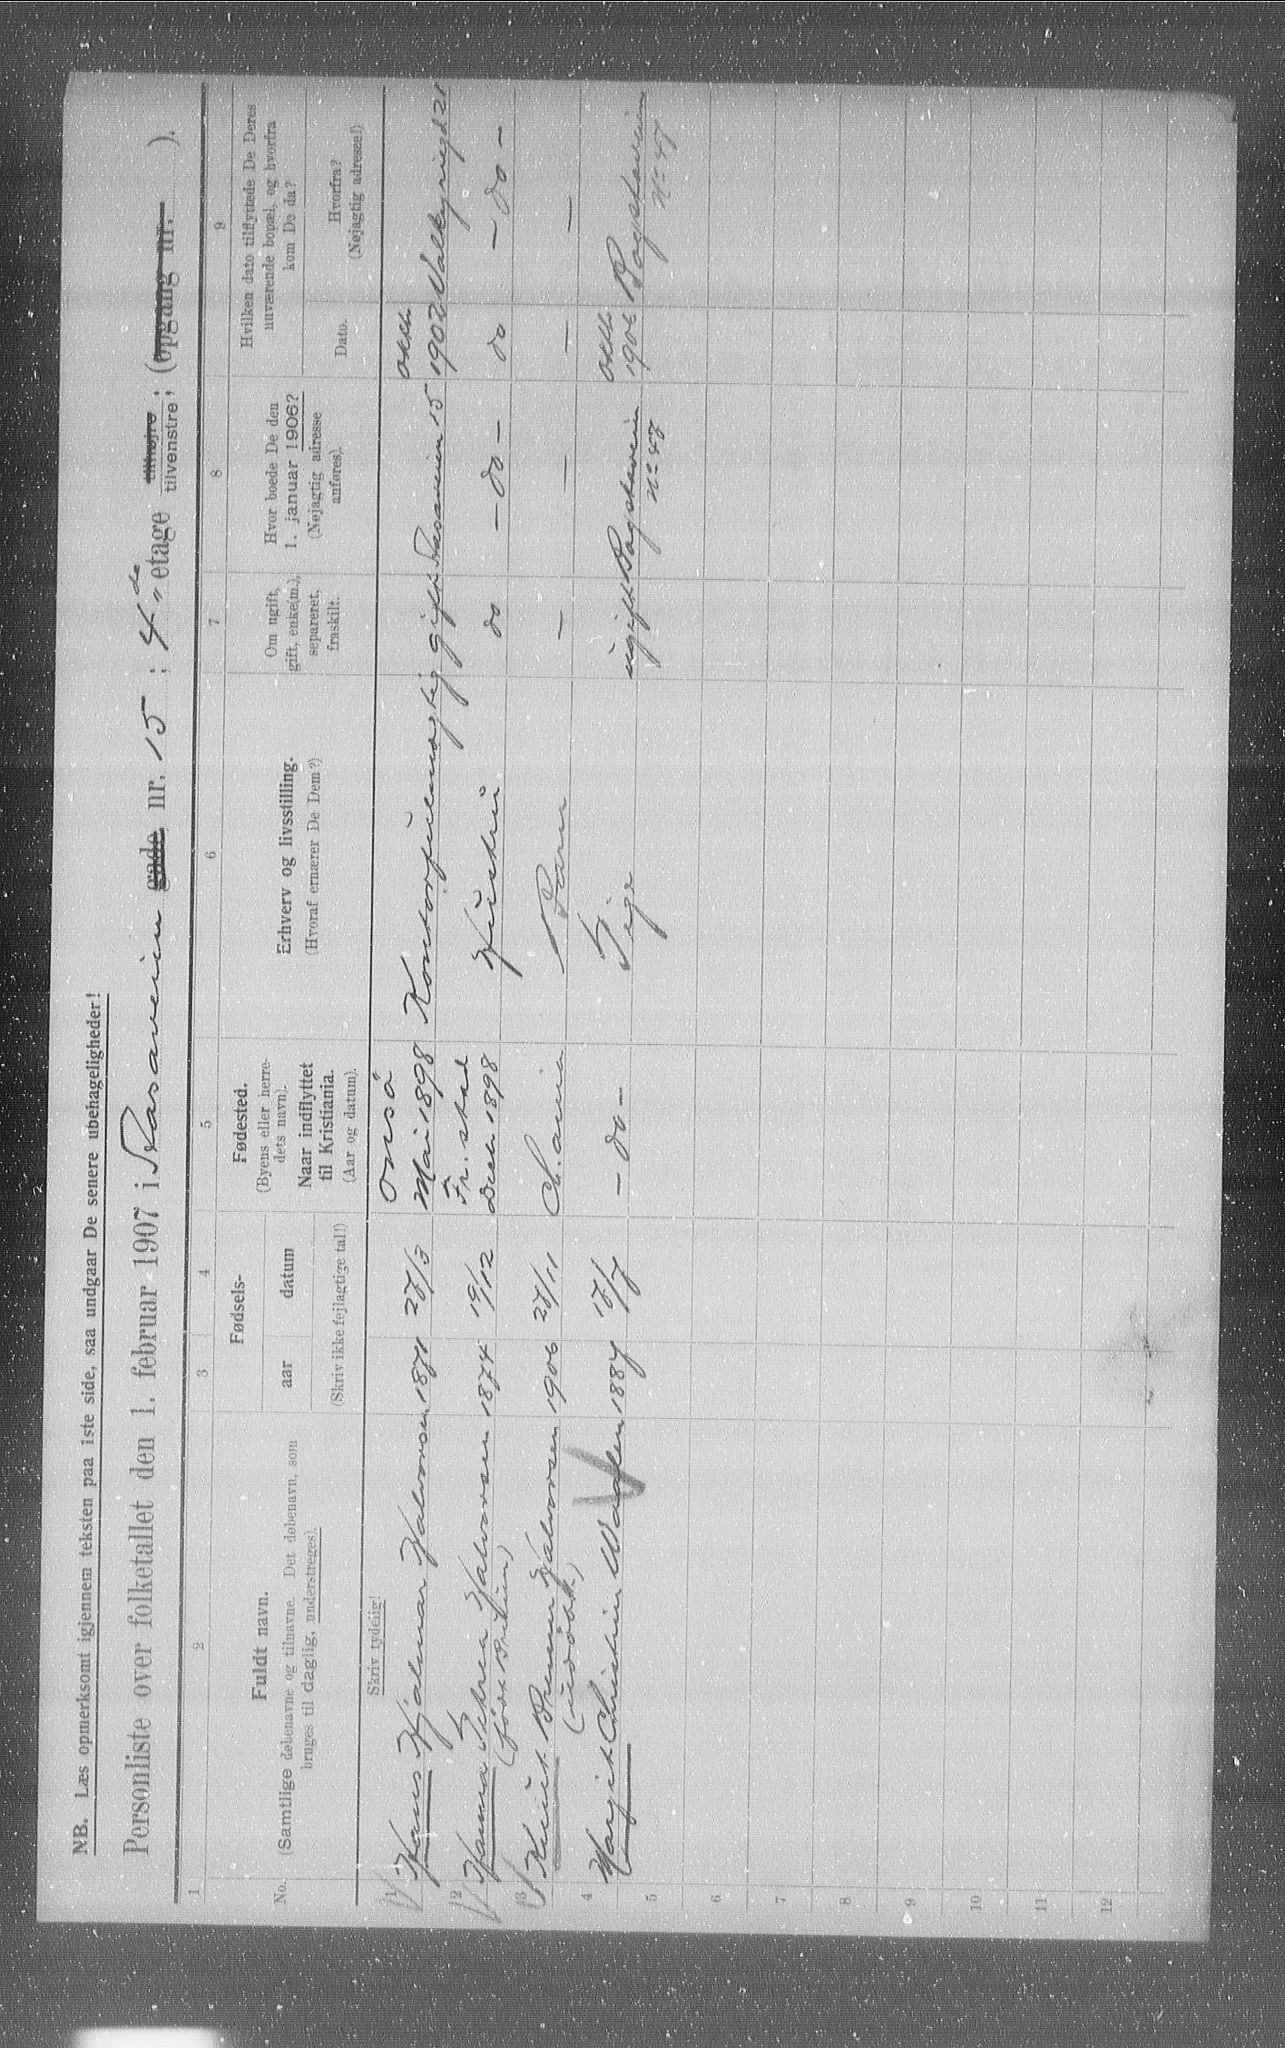 NB. Læs opmerksomt igjennem teksten paa 1ste side, saa undgaar De senere ubehageligheder!
Personliste over folketallet den 1. februar 1907 i Vasaveien gade, nr. 15 ; 4de etage tilhøjre tilvenstre ; (opgang nr. ).
1 2 3 4 5 6 7 8 9
No.
Fuldt navn.
(Samtlige døbenavne og tilnavne. Det døbenavn, som
bruges til daglig, understreges).
Fødsels-
aar datum
(Skriv ikke fejlagtige tal!)
Fødested.
(Byens eller herre-
dets navn).
Naar indflyttet
til Kristiania.
(Aar og datum).
Erhverv og livsstilling.
(Hvoraf ernærer De Dem?)
Om ugift,
gift, enke(m.),
separeret,
fraskilt.
Hvor boede De den
1. januar 1906?
(Nøjagtig adresse
anføres).
Hvilken dato tilflyttede De Deres
nuværende bopæl, og hvorfra
kom De da?
Dato.
Hvorfra?
(Nøjagtig adresse!)
Skriv tydelig!
1 Hans Hjalmar Halvorsen 1871 27/3 Onsö Mai 1898 Kontorfuldmægtig gift Vasaveien 15 Oktb 1902 Valkyriegd 21
2 Hanna Thkea Halvorsen 1874 19/12 Fr.stad Decb 1898 Hustru do - do - do - do -
3 Knut Halvorsen 1906 27/11 Ch.ania Barn - - - -
(udöbt)
4 Margit Christine Waalen 1887 17/7 - do - Pige ugift Bogstadveien No 47 Oktb 1906 Bogstadveien No 47
5
6
7
8
9
10
11
12